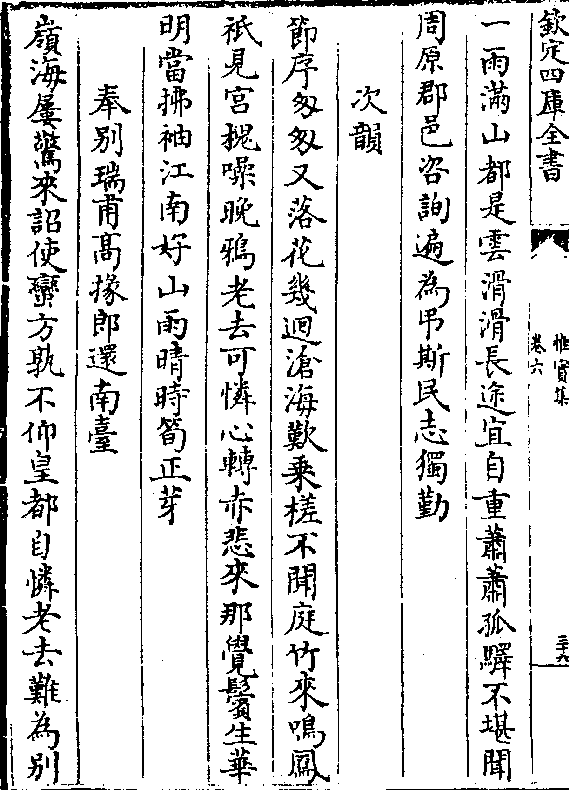 欽定四庫全書
惟實集
卷六
一雨滿山都是雲滑滑長途宜自重蕭蕭孤驛不堪聞
周原郡邑咨詢遍為弔斯民志獨勤
次韻
節序匆匆又落花幾迴滄海歎乘槎不聞庭竹來鳴鳳
祇見宮槐噪晚鴉老去可憐心轉赤悲來那覺鬢生華
明當拂袖江南好山雨晴時筍正芽
奉別瑞甫高掾郎還南臺
嶺海屢驚來詔使蠻方孰不仰皇都自憐老去難為別